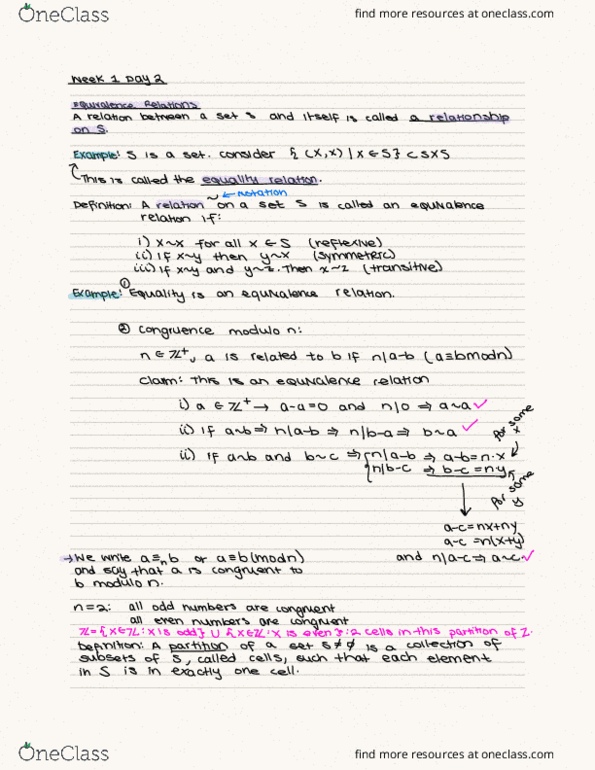 OneClass
find more resources at oneclass.com
Week 1 Day 2
Equivalence Relations
A relation between a set S and itself is called a relationship
on S.
Example: S is a set. consider { (x,x) | x ∈ S} ⊂ S×S
This is called the equality relation.
~ ← notation
Definition: A relation on a set S is called an equivalence
relation if:
i) x~x for all x ∈ S (reflexive)
ii) if x~y then y~x (symmetric)
iii) if x~y and y~z. Then x~z (transitive)
Example: ① Equality is an equivalence relation.
② congruence modulo n:
n ∈ ℤ⁺, a is related to b if n|a-b (a≡bmodn)
claim: This is an equivalence relation
i) a ∈ ℤ⁺ → a-a=0 and n|0 ⇒ a~a ✓
ii) if a~b ⇒ n|a-b ⇒ n|b-a ⇒ b~a ✓
for some x
ii) if a~b and b~c ⇒ { n|a-b ⇒ a-b=n·x
n|b-c ⇒ b-c=ny
for some y
a-c=nx+ny
a-c=n(x+y)
and n|a-c ⇒ a~c ✓
→ We write a≡ₙb or a≡b(modn)
and say that a is congruent to
b modulo n.
n=2: all odd numbers are congruent
all even numbers are congruent
ℤ={x∈ℤ: x is odd} ∪ {x∈ℤ: x is even}: 2 cells in this partition of ℤ.
Definition: A partition of a set S≠∅ is a collection of
subsets of S, called cells, such that each element
in S is in exactly one cell.
OneClass
find more resources at oneclass.com